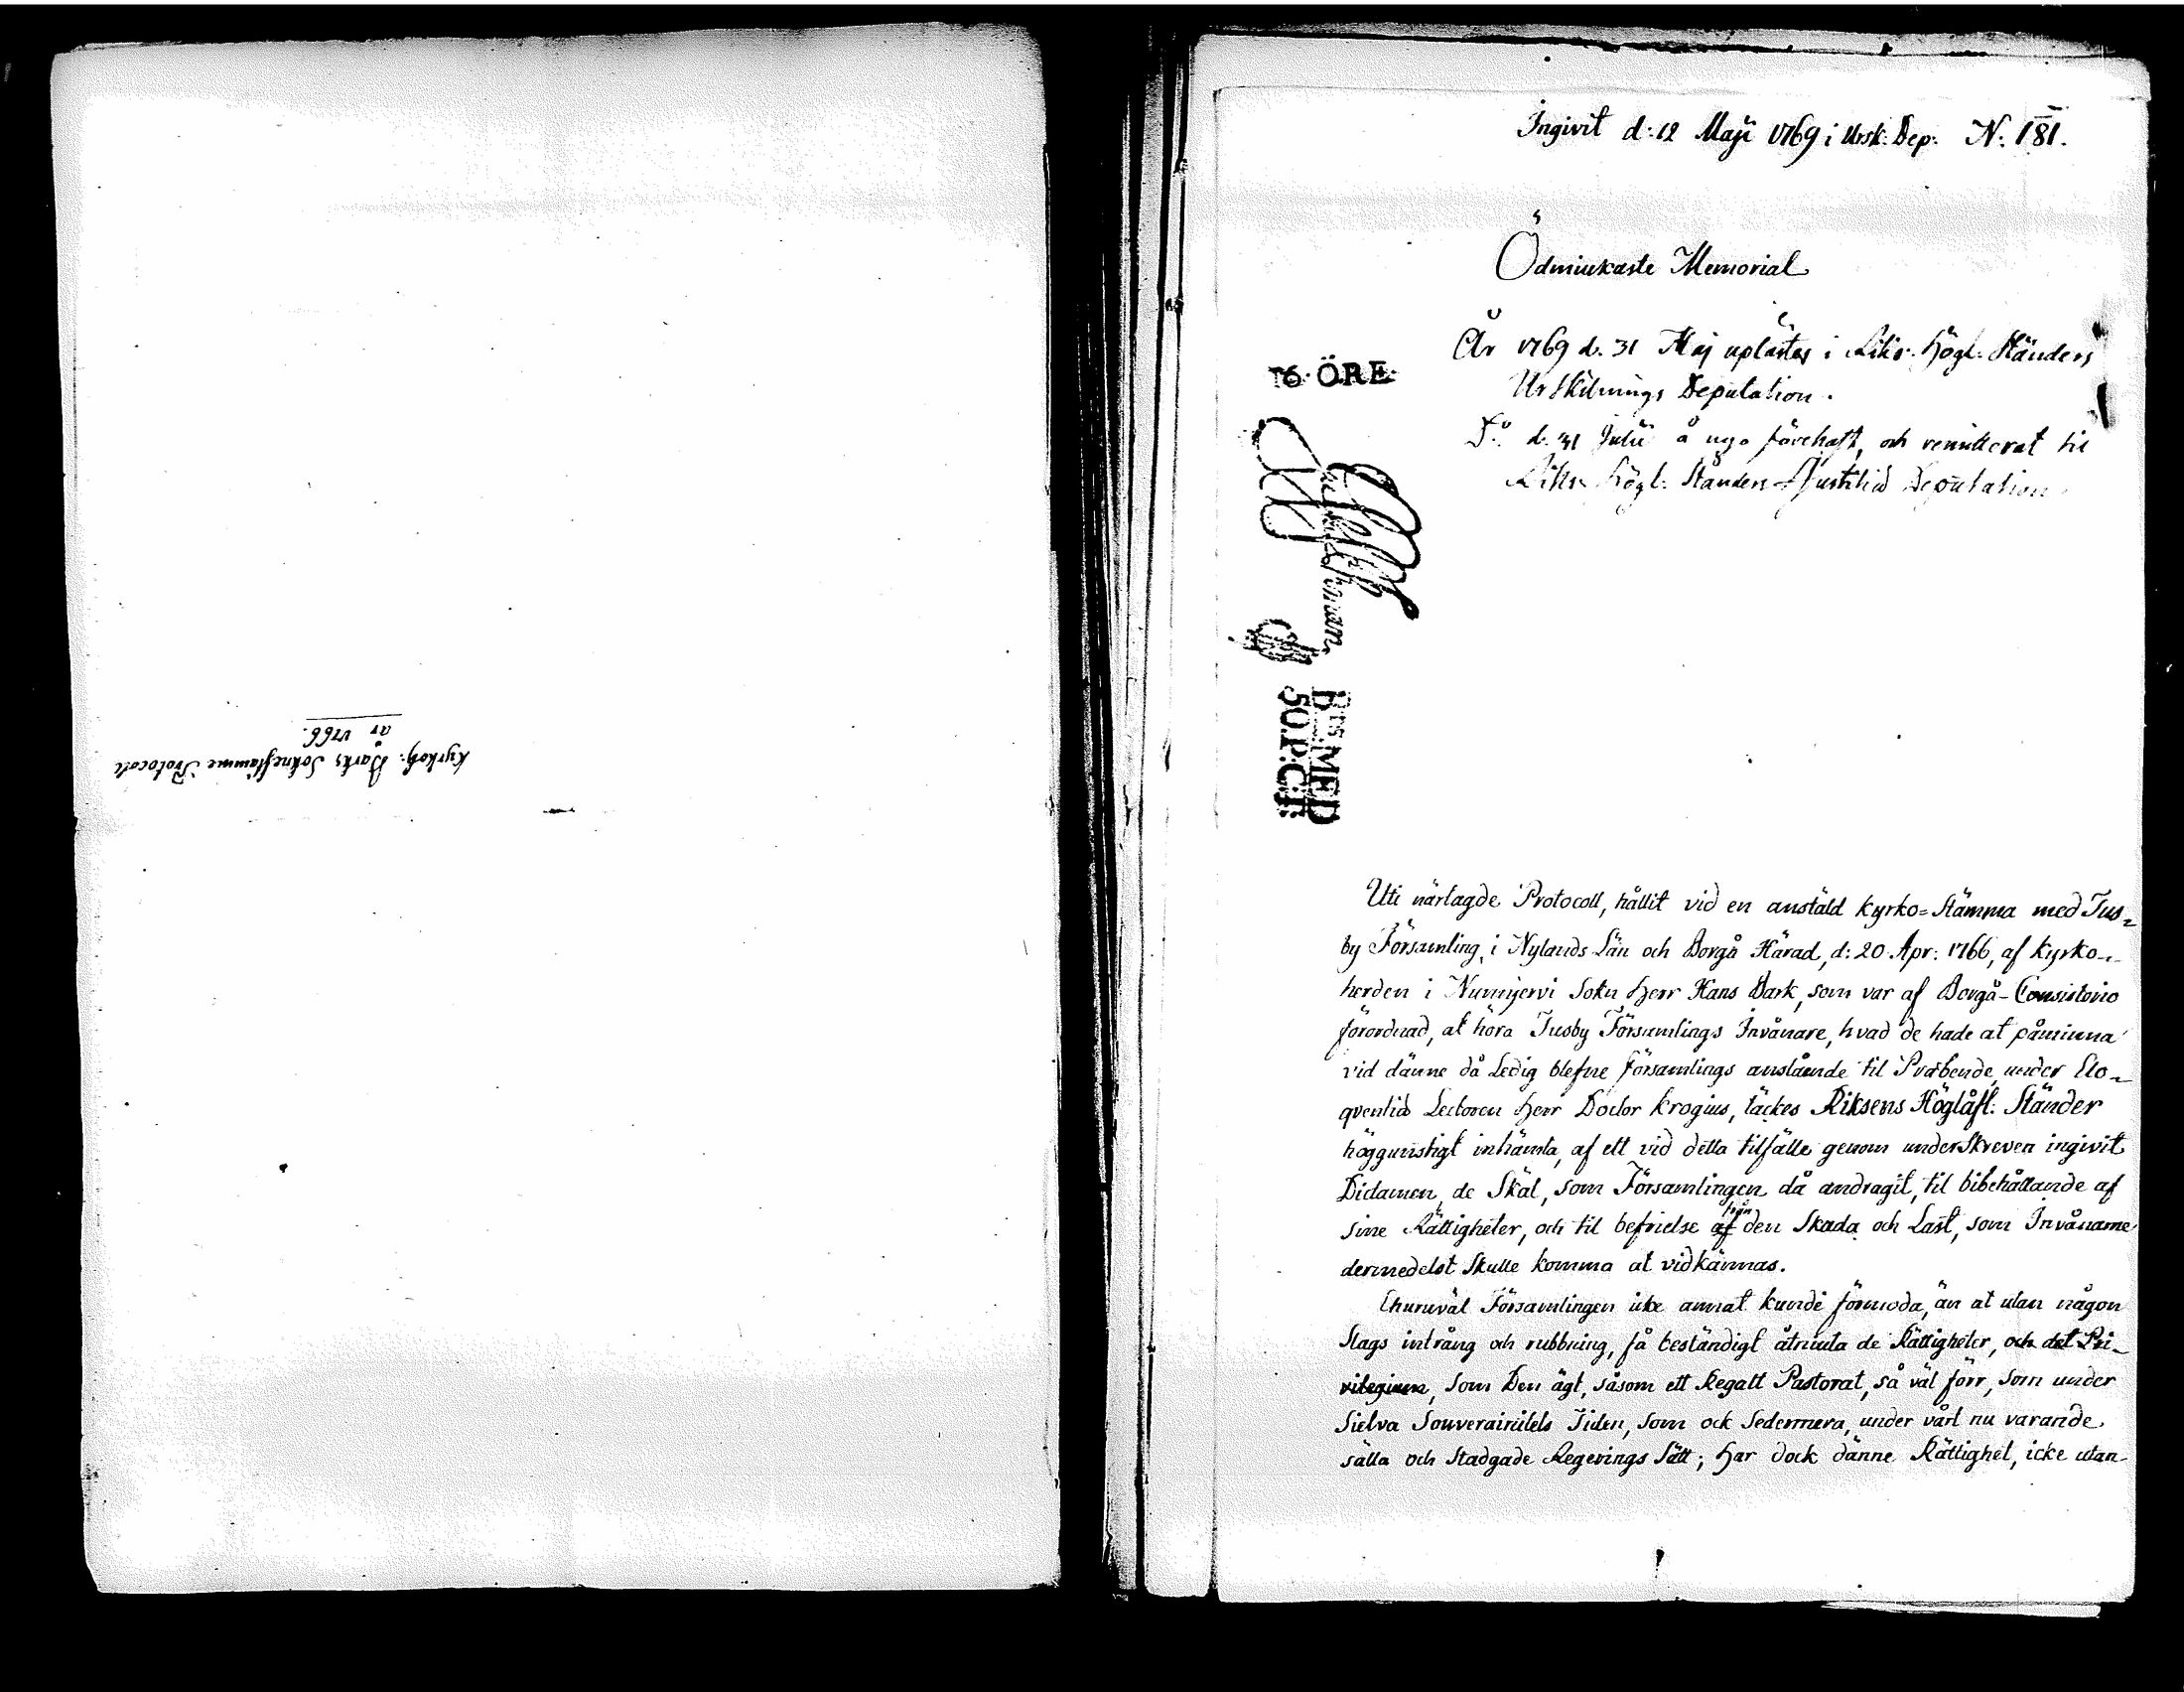 Kyrkoh: Barks Soknestämme Protocoll
år 1766.
Ingivit d: 12 Maji 1769 i Ursk: Dep: N: 181.
Ödmiukaste Memorial
År 1769 d. 31 Maj uplästes i Riks: Högl: Ständers
Urskilnings Deputation.
Dº d. 31 Julii å nyo förehaft, och remitterat til
Riks: Högl: Ständers Justitiæ Deputation
6 ÖRE
MED
50.P:C:T:
Uti närlagde Protocoll, hållit vid en anstäld kyrko=Stämma med Tus=
by Församling, i Nylands Län och Borgå Härad, d: 20 Apr: 1766, af kyrko-
herden i Nurmijervi Sokn Herr Hans Bark, som var af Borgå-Consistorio
förordnad, at höra Tusby Församlings Invånare, hvad de hade at påminna
vid dänne då Ledig blefne församlings anslående til Præbende under Elo-
qventiæ Lectoren Herr Doctor Krogius, täckes Riksens Höglåfl: Ständer
höggunstigt inhämta, af ett vid detta tilfälle genom underskreven ingivit
Dictamen, de Skäl, som Församlingen då andragit, til bibehållande af
sine Rättigheter, och til befrielse af från den Skada och Last, som Invånarne
dermedelst Skulle komma at vidkännas.
Ehuruväl Församlingen icke annat kunde förmoda, än at utan någon
Slags intrång och rubbning, få beständigt åtniuta de Rättigheter, och det Pri-
vilegium, Som Den ägt, såsom ett Regalt Pastorat, så väl förr, Som under
Sielva Souverainitets Tiden, som ock Sedermera, under vårt nu varande
sälla och Stadgade Regerings Sätt; har dock dänne Rättighet, icke utan